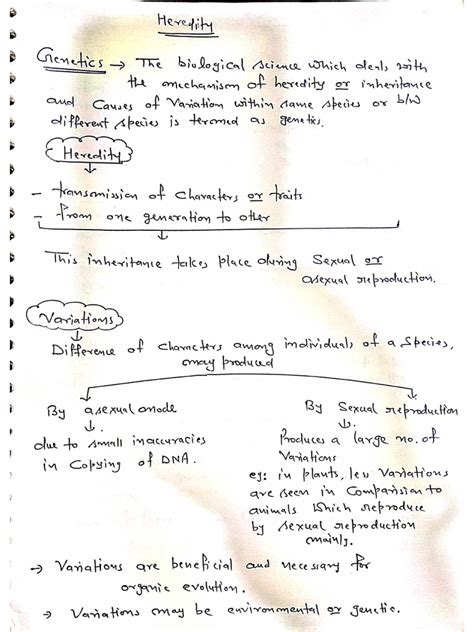 Heredity
Genetics → The biological science which deals with
the mechanism of heredity or inheritance
and causes of variation within same species or b/w
different species is termed as genetics.
Heredity
- transmission of characters or traits
- from one generation to other
This inheritance takes place during sexual or
asexual reproduction.
Variations
Difference of characters among individuals of a species,
may produced
By asexual mode
due to small inaccuracies
in copying of DNA.
By sexual reproduction
Produces a large no. of
variations
eg: in plants, less variations
are seen in comparison to
animals which reproduce
by sexual reproduction
mainly.
→ Variations are beneficial and necessary for
organic evolution.
→ Variations may be environmental or genetic.